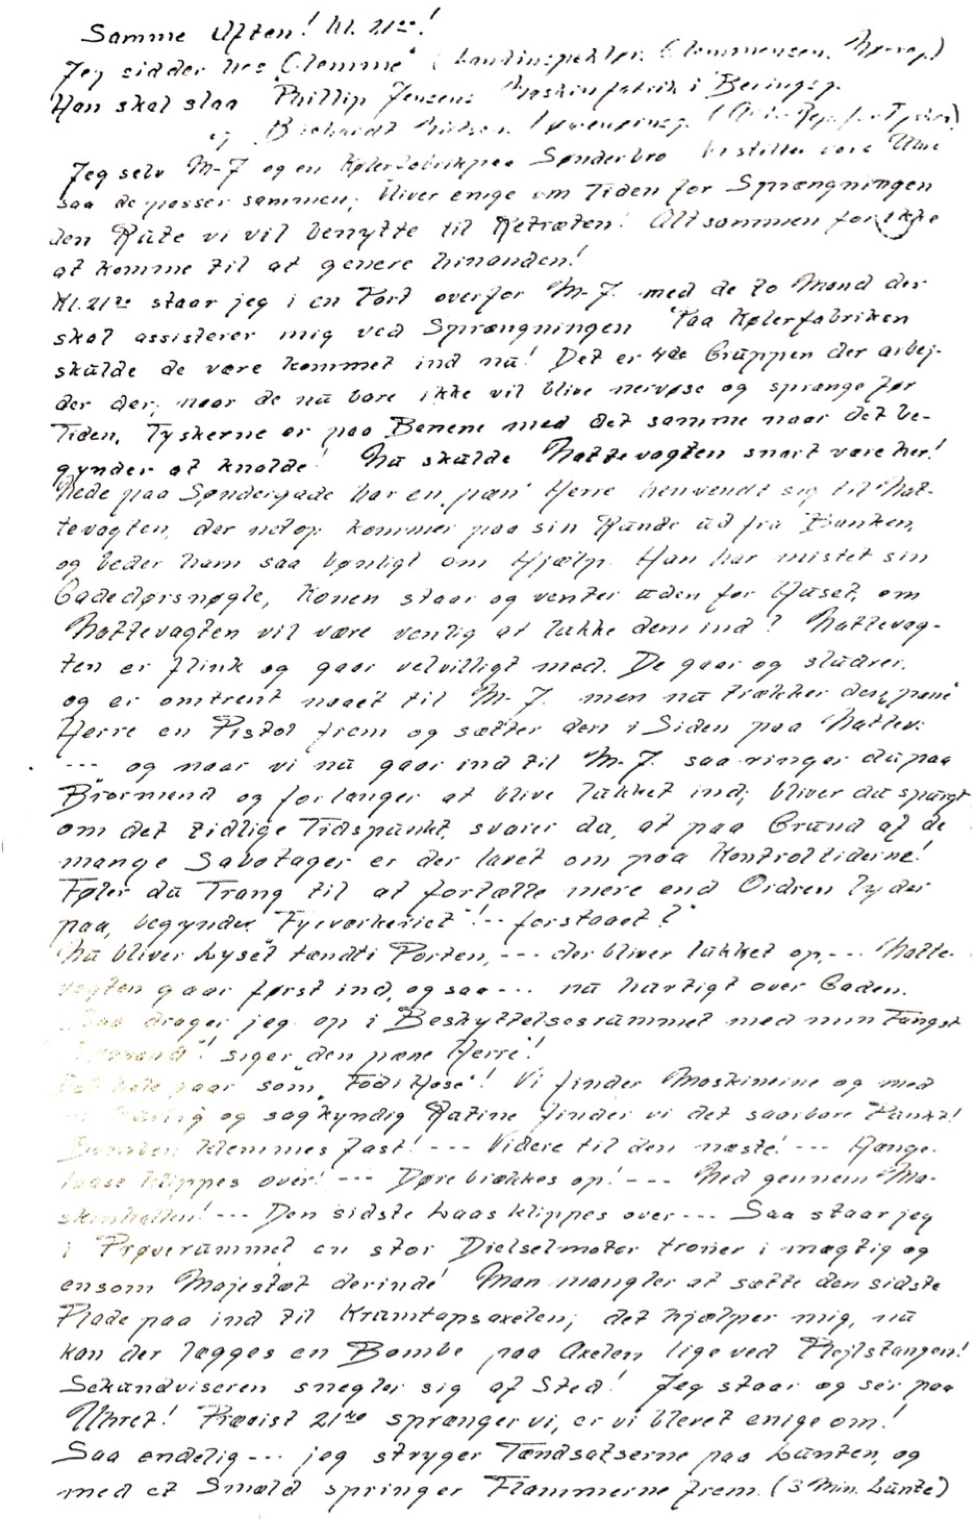 Samme Aften! Kl. 21⁰⁰!
Jeg sidder hos "Clemme" (Landinspektør Clemmensen,
Han skal slaa Phillip Jensens Maskinfabrik i Beringsg.
og
Jeg selv M-J og en Kølerfabrik paa Sønderbro vi stiller vore Uhre
saa de passer sammen, bliver enige om Tiden for Sprængningen
den Rute vi vil benytte til Retræten! Altsammen for ikke
at komme til at genere hinanden!
Kl. 21 staar jeg i en Port overfor M-J. med de to Mænd der
skal assisterer mig ved Sprængningen Paa Kølerfabriken
skulde de være kommet ind nu! Det er 4de Gruppen der arbej-
der der, naar de nu bare ikke vil blive nervøse og sprænge før
Tiden. Tyskerne er paa Benene med det samme naar det be-
gynder at knalde! Nu skulde Nattevagten snart være her!
Nede paa Søndergade har en "pæn" Herre henvendt sig til Nat-
tevagten, der netop kommer paa sin Runde ud fra Banken,
og beder ham saa bønligt om Hjælp. Han har mistet sin
Gadedørsnøgle, Konen staar og venter uden for Huset, om
Nattevagten vil være venlig at lukke dem ind? Nattevag-
ten er flink og gaar velvilligt med. De gaar og sludrer,
og er omtrent naaet til M-J. men nu trækker den "pæne"
Herre en Pistol frem og sætter den i Siden paa Nattev:
--- og naar vi nu gaar ind til M-J. saa ringer du paa
Biormand og forlanger at blive lukket ind; bliver du spurgt
om det tidlige Tidspunkt, svarer du, at paa Grund af de
mange Sabotager er der lavet om paa Kontroltiderne!
Føler du Trang til at fortælle mere end Ordren lyder
paa, begynder "Fyrværkeriet"!-- forstaaet?"
Nu bliver Lyset tændt i Porten, --- der bliver lukket op, --- Natte-
vagten gaar først ind, og saa --- nu hurtigt over Gaden.
drager jeg op i Beskyttelsesrummet med min Fangst
siger den pæne Herre!
gaar som "Fod i Hose"! Vi finder Maskinerne og med
og sagkyndig Rutine finder vi det saarbare Punkt!
Bomben klemmes fast! --- Videre til den næste! --- Hænge-
laase klippes over! --- Døre brækkes op! --- Ned gennem Ma-
skinhallen! --- Den sidste Laas klippes over --- Saa staar jeg
i Prøverummet en stor Dielselmotor troner i mægtig og
ensom Majestæt derinde! Man mangler at sætte den sidste
Plade paa ind til Krumtapsaxelen; det hjælper mig, nu
kan der lægges en Bombe paa Axelen lige ved Plejlstangen!
Sekundviseren snegler sig af Sted! Jeg staar og ser paa
Uhret! Præcist 21 sprænger vi, er vi blevet enige om!
Saa endelig --- jeg stryger Tændsatserne paa Lunten, og
med et Smæld springer Flammerne frem. (3 Min. Lunte)